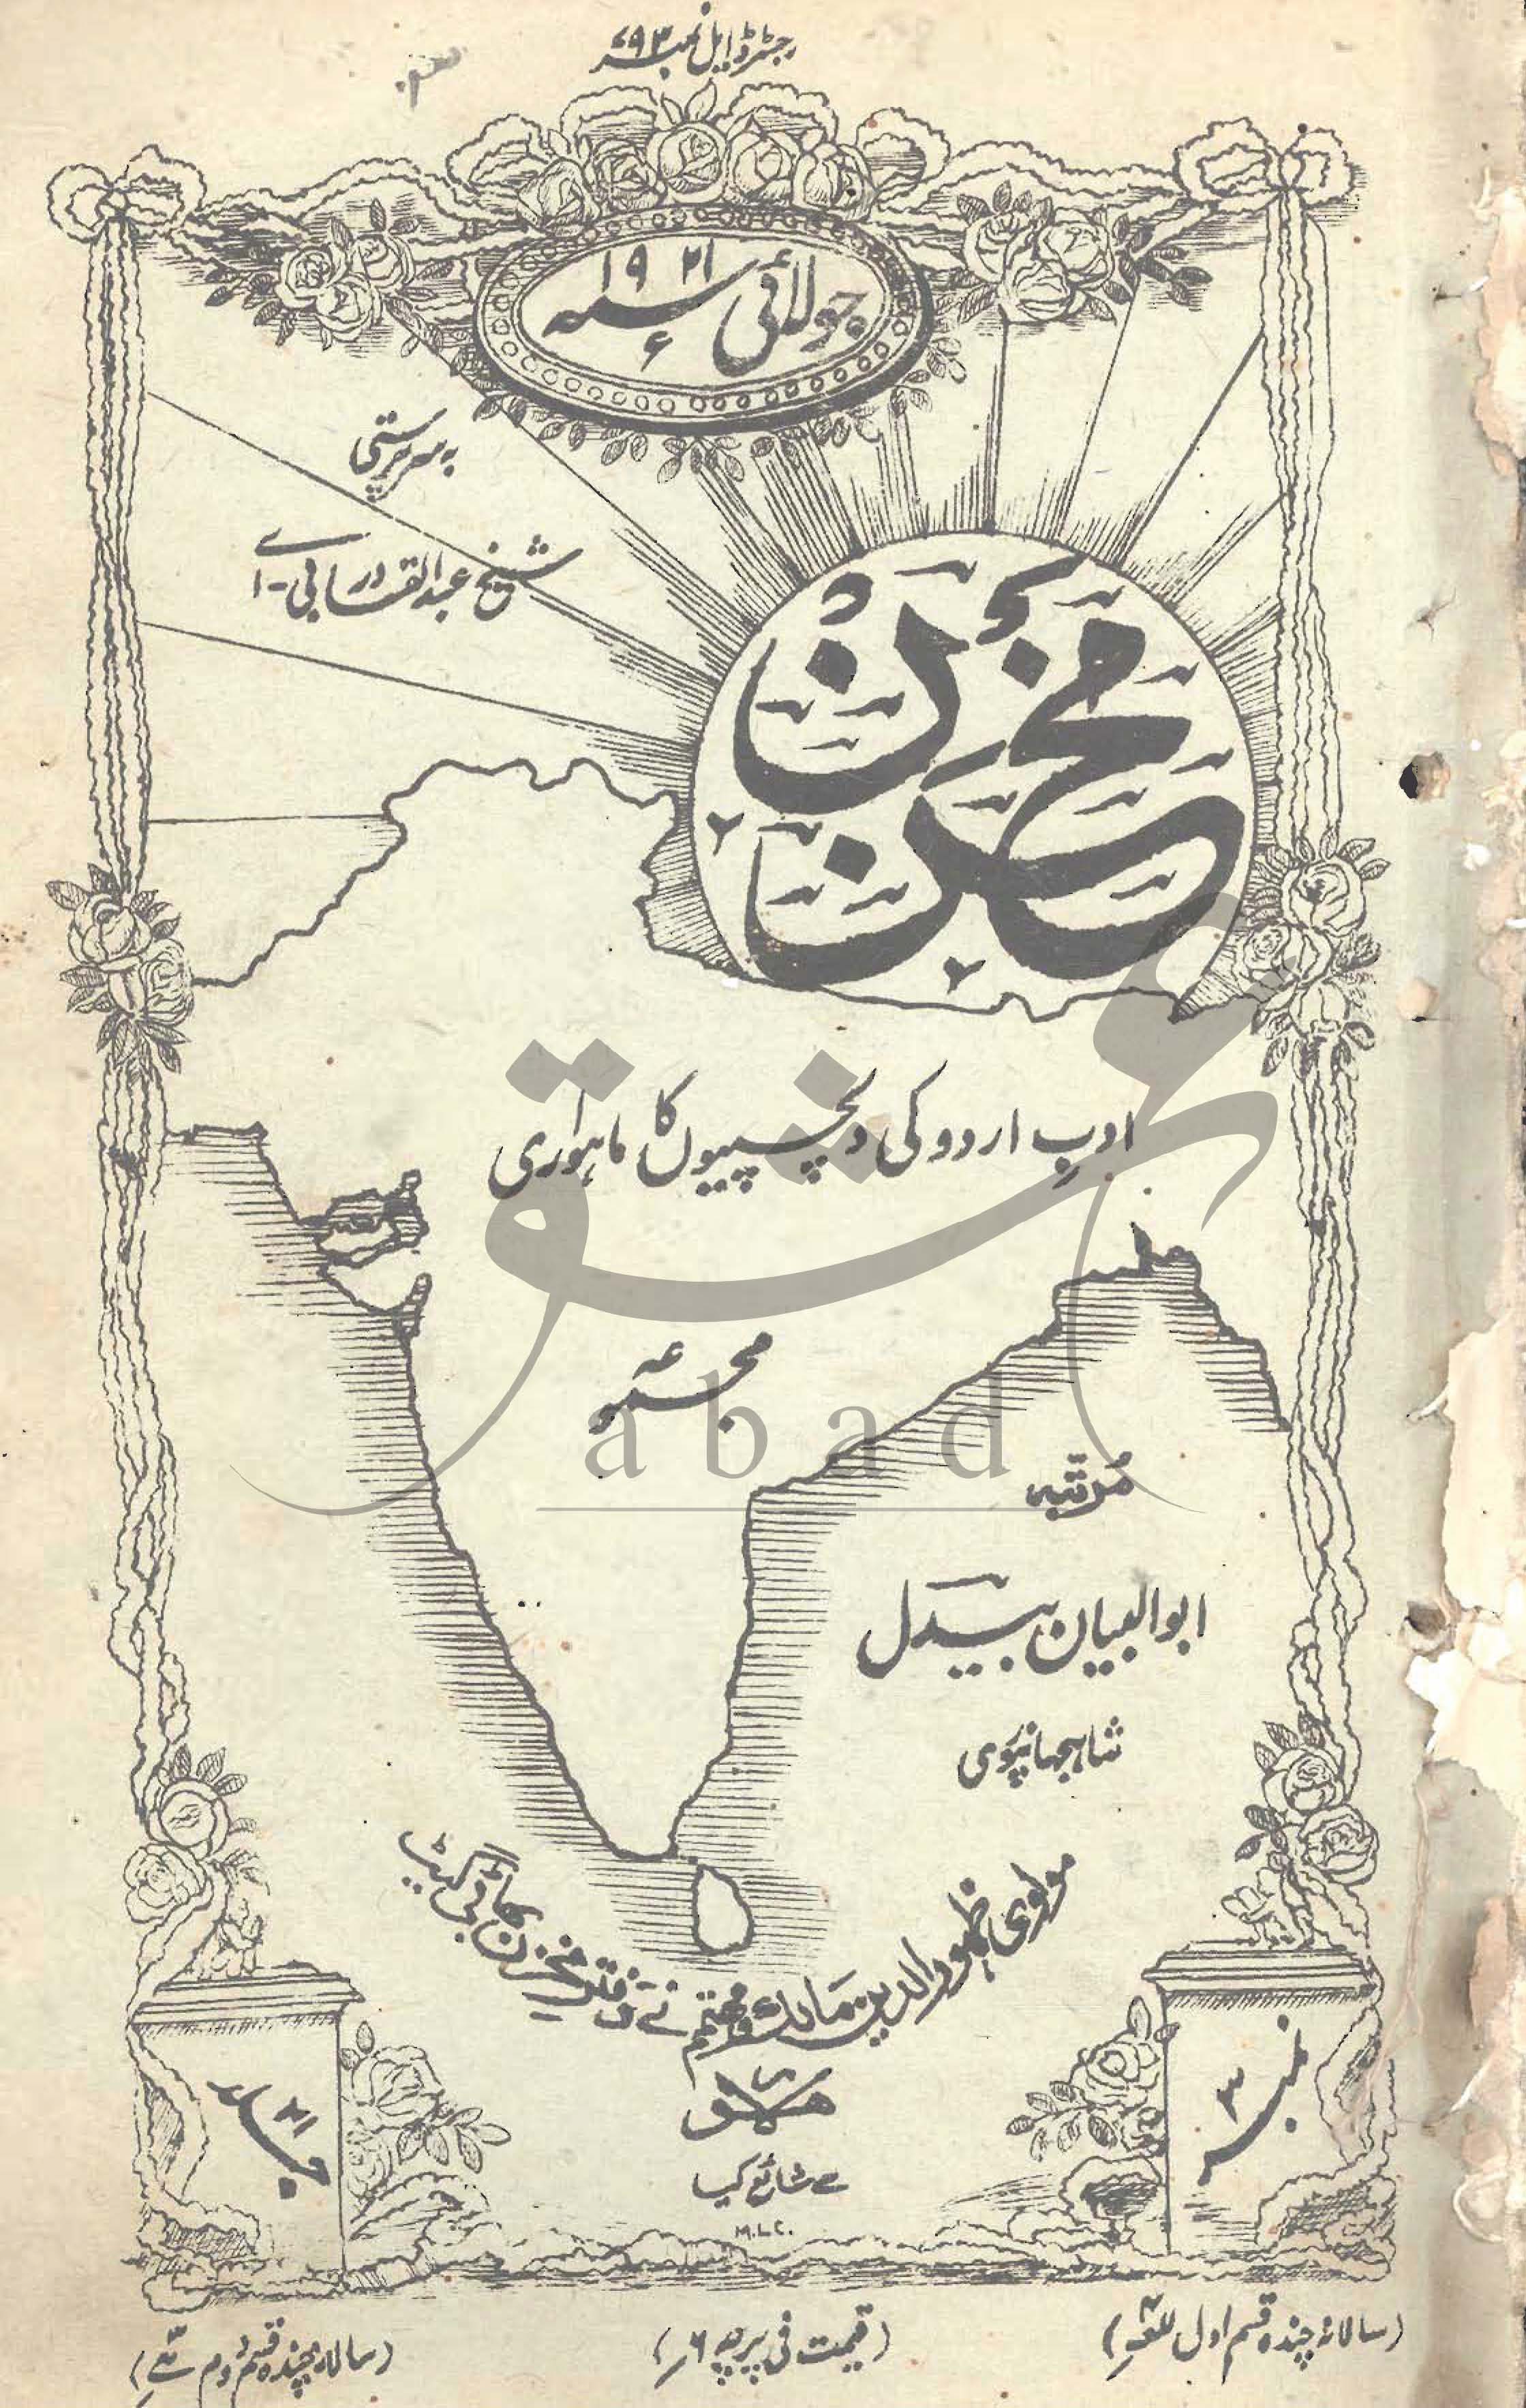 رجسٹرڈ ایل نمبر ۶۹۳
جولائی سنہ ۱۹۲۱ء
بہ سرپرستی
شیخ عبدالقادر بی-اے
مخزن
ادبِ اردو کی دلچسپیوں کا ماہواری
مجموعہ
مرتبہ
ابوالبیان بیدل
شاہجہانپوری
مولوی ظہور الدین مالک و مہتمم نے دفتر مخزن بھاٹی گیٹ
لاہور
سے شائع کیا
M.L.C.
نمبر ۳
جلد ۴۱
(سالانہ چندہ قسم اول
(قیمت فی پرچہ ۶ر)
(سالانہ چندہ قسم دوم
عشق
abad